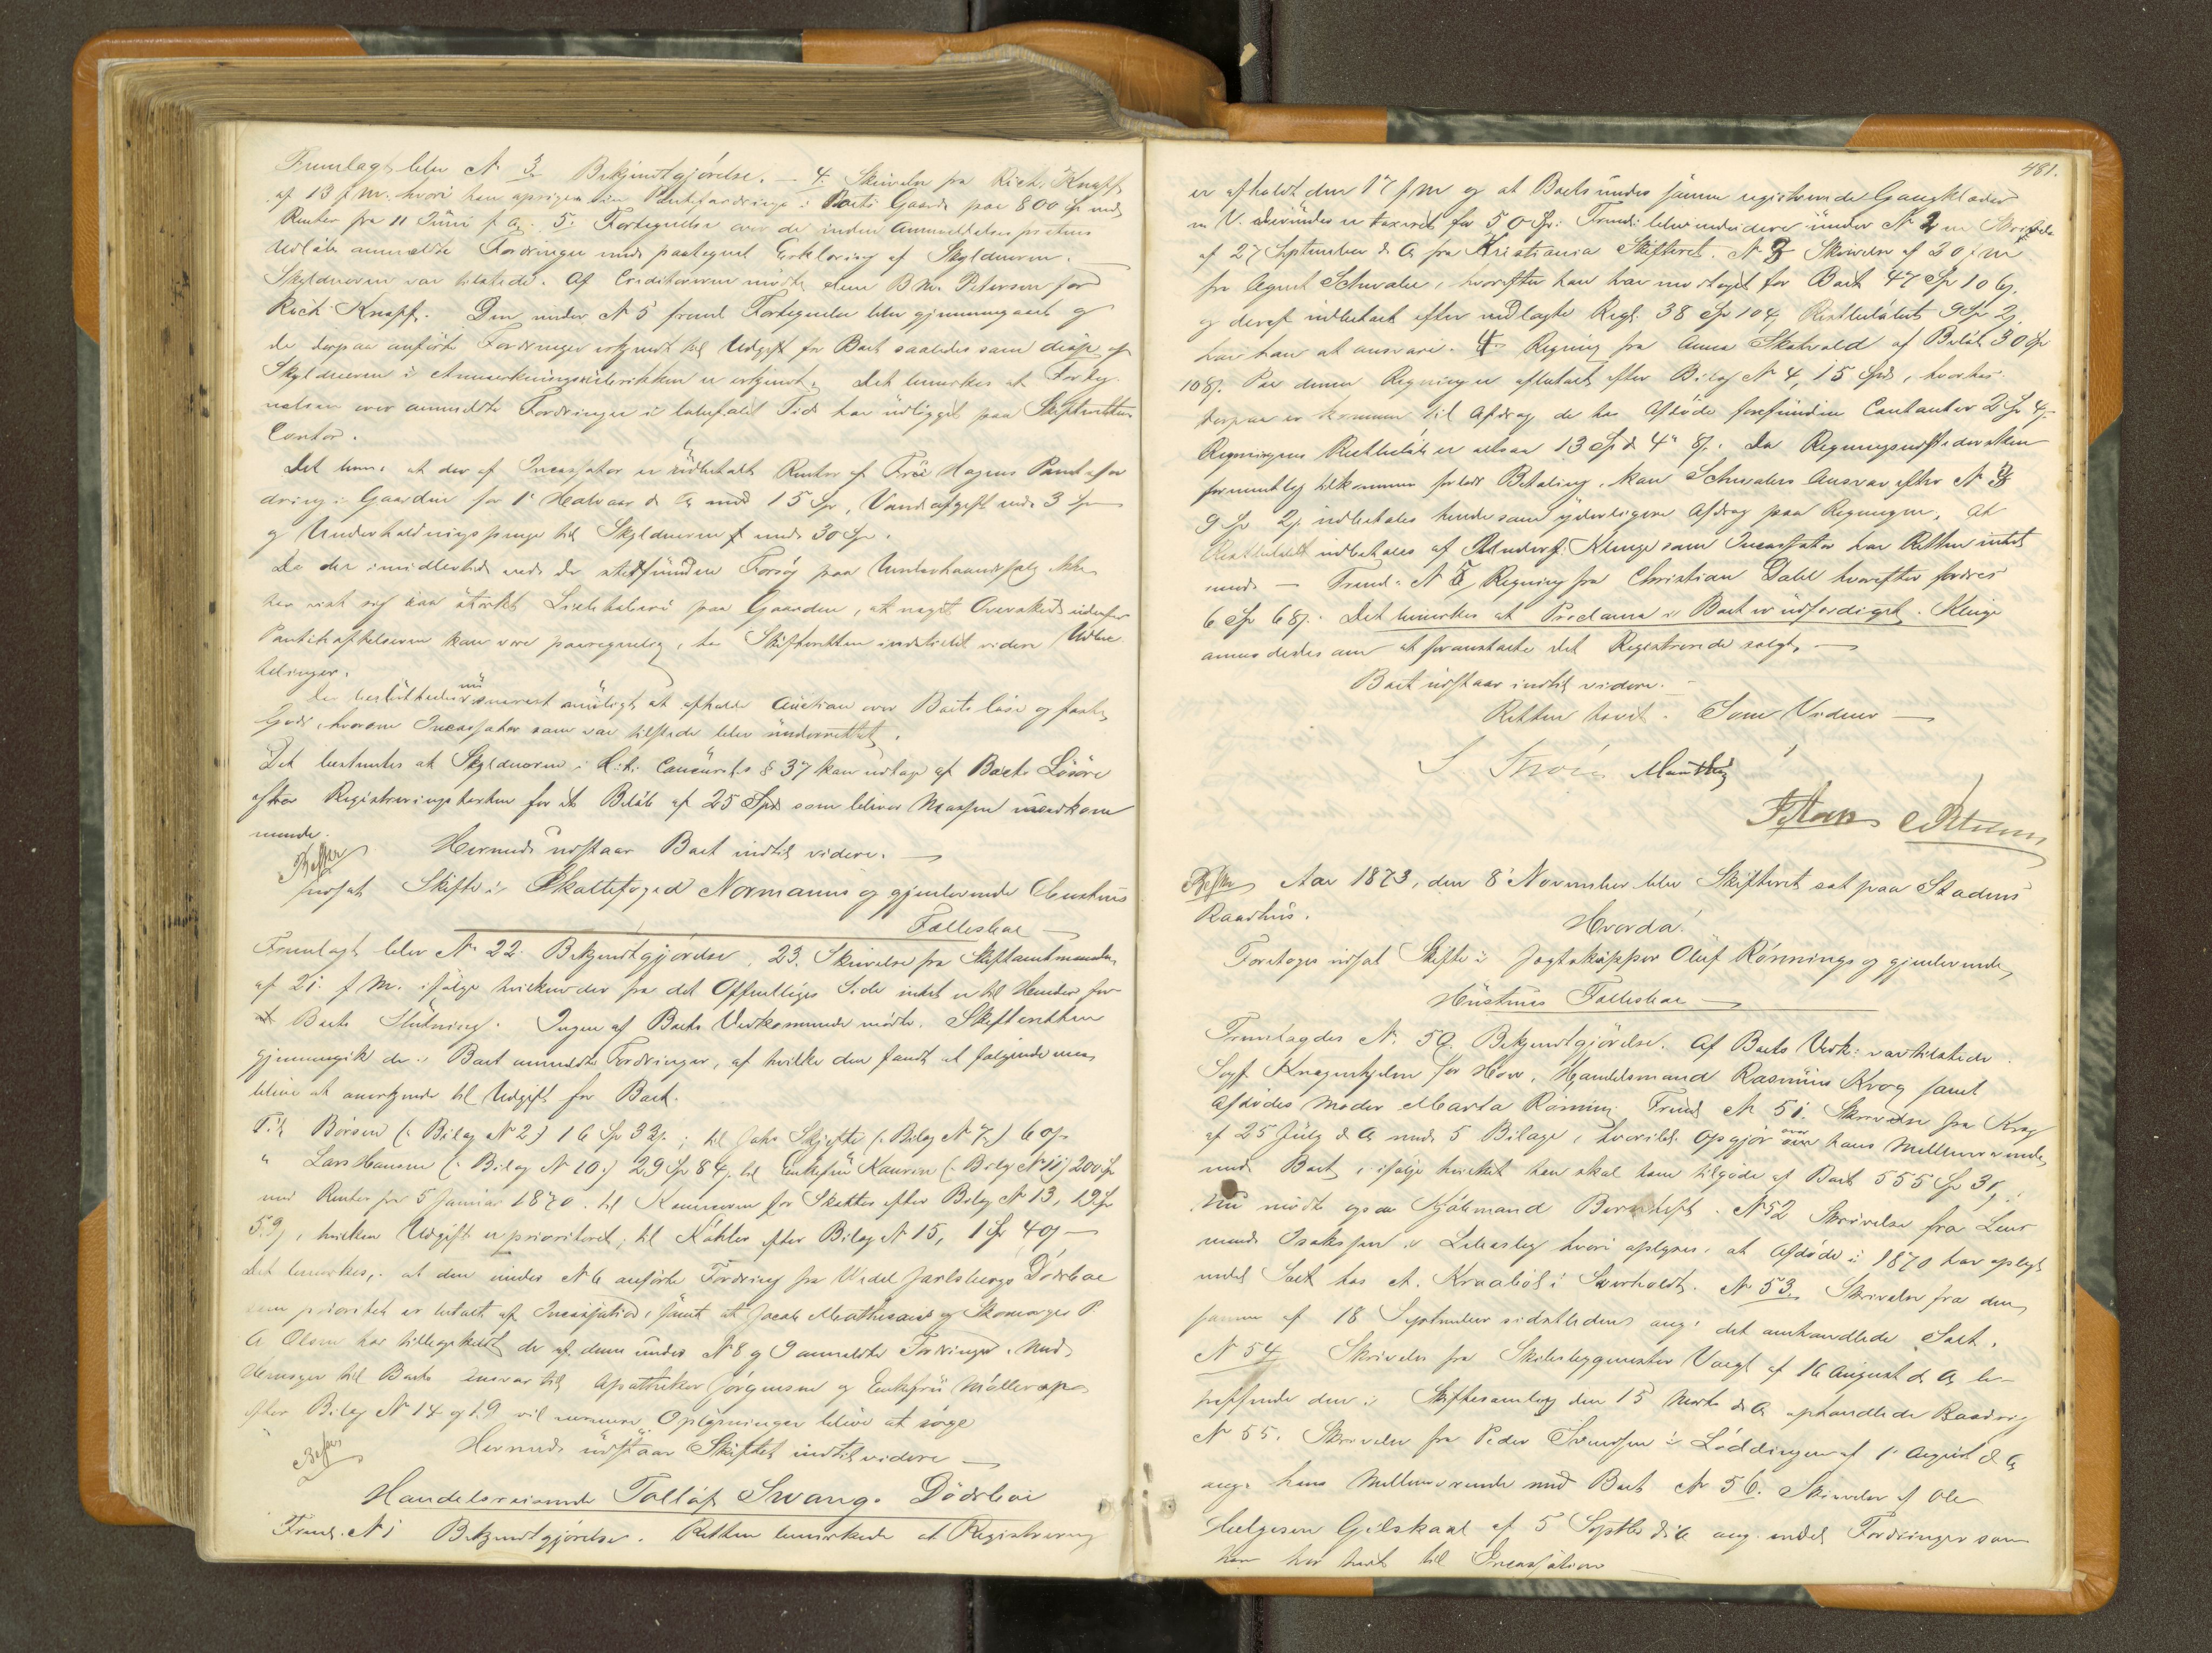 Fremlagt blev N. 3 Bekjendtgjörelse. – 4. Skrivelse fra Rich. Knaff
af 13 f. M. hvori han opsiger sin Pantefordring i Boets Gaard paa 800 Sp med
Renter fra 11 Juni f. A. 5. Fortegnelse over de inden Anmeldelsesfristens
Udlöb anmeldte Fordringer med paategnet Erklæring af Skyldneren.
Skyldneren var tilstede. Af Creditorerne mödte alene B M. Petersen for
Rich Knaff. Den under N 5 freml Fortegnelse blev gjennemgaaet og
de derpaa anförte Fordringer erkjendt til Udgift for Boet saaledes som de af
Skyldneren i Anmærkningsrubrikken er erkjendt. Det bemærkes at Forteg-
nelsen over anmeldte Fordringer i lovbefalet Tid har udligget paa Skifterettens
Contor.
Det bem. at der af Incassator er udbetalt Renter af Frü Hagens Pantefor
dring i Gaarden for 1' Halvaar d A med 15 Sp, Vandafgift med 3 Sp
og Underholdningspenge til Skyldneren med 30 Sp.
Da det imidlertid ved de stedfundne Forsög paa Underhaandssalg ikke
har vist sig saa stærkt Liebhaberi paa Gaarden, at noget Overskud udenfor
Pantehæftelserne kan være paaregnelig, har Skifteretten indstillet videre Udbe
talinger.
Det besluttedes nu snarest muligt at afholde Auction over Boets löse og faste
Gods, hvorom Incassator som var tilstede blev underrettet.
Det bestemtes at Skyldneren i H. t. Concurslov § 37 kan udtage af Boets Lösöre
efter Registreringstaxten for et Belöb af 25 Spd som bliver Massen uvedkom
mende.
Hermed udstaar Boet indtil videre.
Foretoges
fortsat Skifte i Skattefoged Normanns og gjenlevende Enkes
Fællesboe
Fremlagt blev N. 22. Bekjendtgjörelse. 23. Skrivelse fra Stiftamtmanden
af 21. f M. ifölge hvilken der fra det Offentliges Side intet er til Hinder for
Boets Slutning. Ingen af Boets Vedkommende mödte. Skifteretten
gjennemgik de i Boet anmeldte Fordringer, af hvilke den fandt at fölgende maa
blive at anerkjende til Udgift for Boet.
Til Börsen (: Bilag N 2) 16 Sp 33 s; til Joh. Skjefte (: Bilag N 7.) 60 s
" Lars Hansen (: Bilag N 10.) 29 Sp 84 s. til Enkefrü Kaurin (: Bilag N 11) 200 Sp
med Renter fra 5 Januar 1870. til Kæmneren for Skatter efter Bilag N 13, 12 Sp
59 s, hvilken Udgift er prioriteret; til Köhler efter Bilag N 15, 1 Sp 40 s –
Det bemærkes, at den under N 6 anförte Fordring fra Wedel Jarlsbergs Dödsboe
som prioritet er betalt af Incassator, samt at Jacob Mathiesens og Skomager P.
A Olsen har tilbagekaldt de af dem under N 8 og 9 anmeldte Fordringer. Med
Hensyn til Boets Ansvar til Apotheker Jörgensen og Enkefrü Möllerop
efter Bilag N 14 og 19 vil nærmere Oplysninger blive at söge
Hermed udstaar Skiftet indtil videre –
Handelsreisende Tollöf Svang. Dödsboe
Freml. N 1 Bekjendtgjörelse. Retten bemærkede at Registrering
481.
er afholdt den 17 f M og at Boets under samme registrerede Gangklæder
m V. derunder er taxeret for 50 Sp. Freml. blev endvidere under N 2 en Skrivelse
af 27 September d. A fra Kristiania Skifteret. N 3 Skrivelse af 30 f M
fra Agent Schwale, hvorefter han har modtaget for Boet 47 Sp 106 s.
og deraf udbetalt efter vedlagte Regl. 38 Sp 104 s, Restbelöbet 9 Sp 2 s
har han at ansvare. 4 Regning fra Anna Skatvold af Belöb 30 Sp
108 s. Paa denne Regning er afbetalt efter Bilag N 4, 15 Spd, hvorhos
derpaa er kommen til Afdrag de hos Afdöde forefundne Contanter 2 Sp 4 s.
Regningens Restbelöb er altsaa 13 Spd 4" 8 s. Da Regningsudstedersken
formentlig tilkommer forlods Betaling, kan Schwales Ansvar efter N 3
9 Sp 2 s. udbetales hende som yderligere Afdrag paa Regningen. At
Restbelöbet udbetales af Underf. Klinge som Incassator har Retten intet
imod – Freml. N 5 Regning fra Christian Dahl hvorefter fordres
6 Sp 68 s. Det bemærkes at Proclama i Boet er udfærdiget. Klinge
anmodedes om at foranstalte det Registrerede solgt.
Boet udstaar indtil videre. –
Retten hævet. Som Vidner –
Aar 1873, den 8' November blev Skifteret sat paa Stadens
Raadhüs.
Hvorda!
Foretoges udsat Skifte i Jagtskipper Olüf Rönnings og gjenlevende
Hüstrues Fællesboe –
Fremlagdes N. 50. Bekjendtgjörelse. Af Boets Vedk. var tilstede
Sagf Knagenhjelm for Höe, Handelsmand Rasmus Krog samt
Afdödes Moder Marta Rönning. Freml N 51. Skrivelse fra Krog
af 25 Jüly d A med 5 Bilage, hvori bl. Opgjör over hans Mellemværende
med Boet, ifölge hvilket han skal have tilgode af Boet 555 Sp 31 s.
Nü mödte ogsaa . N 52 Skrivelse fra Lens
mand Isaksen i hvori oplyses, at Afdöde i 1870 har oplagt
endel Salt hos A. Kraaböl i Sværholdt. N 53. Skrivelse fra den
samme af 18 September sidstleden ang. det omhandlede Salt.
N 54 Skrivelse fra Skibsbygmester Vaagt af 16 August d. A be-
træffende den i Skiftesamling den 15 Marts d. A ophandlede Baadvrag
N 55. Skrivelse fra Peder Svendsen i Löddingen af 1' August d A
ang. hans Mellemværende med Boet N 56. Skrivelse af Ole
Helgesen Gilskaal af 5 Septbr d. A ang. endel Fordringer som
han har havt til Incassation